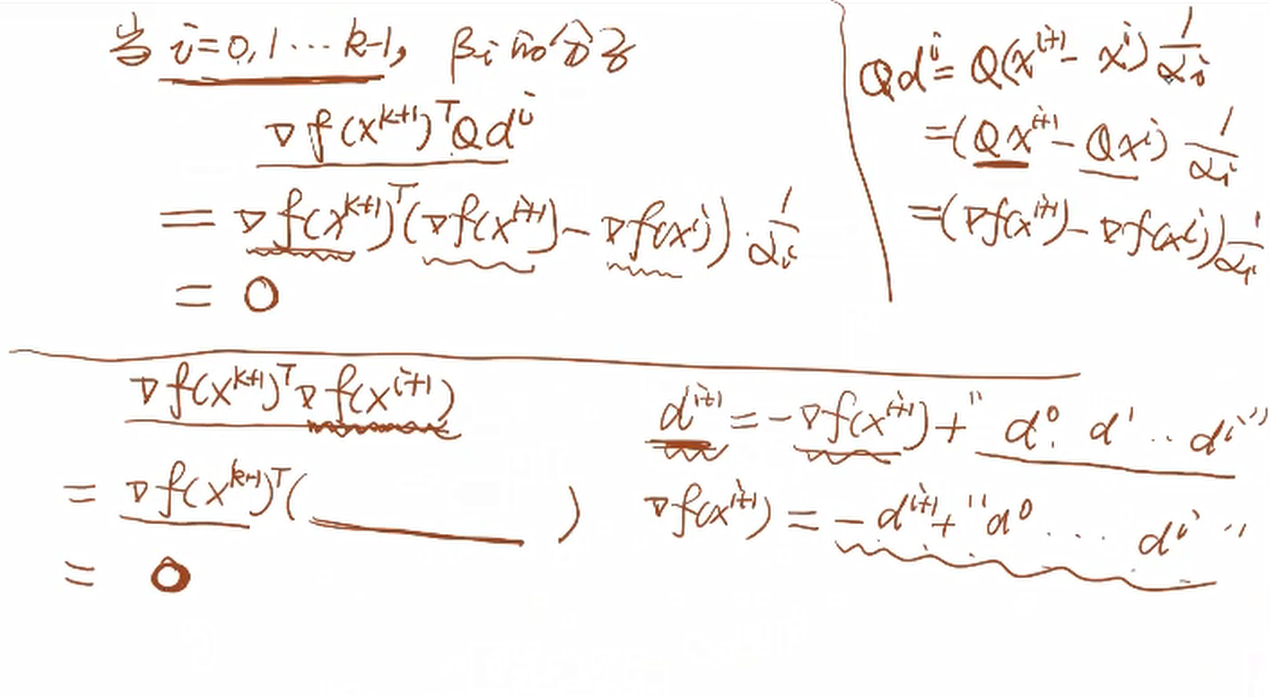 当 i=0,1…k-1, βi的分子
∇f(x^{k+1})^T Qd^i
= ∇f(x^{k+1})^T(∇f(x^{i+1}) - ∇f(x^i))·1/αi
= 0
Qd^i = Q(x^{i+1} - x^i) 1/αi
=(Qx^{i+1} - Qx^i) 1/αi
=(∇f(x^{i+1}) - ∇f(x^i)) 1/αi
∇f(x^{k+1})^T ∇f(x^{i+1})
= ∇f(x^{k+1})^T(          )
= 0
d^{i+1} = -∇f(x^{i+1}) + " d^0. d^1 ‥ d^i "
∇f(x^{i+1}) = -d^{i+1} + " d^0 …. d^i "